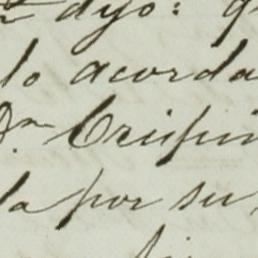 dyo: q
lo acorda
Dn Crispin
la por su